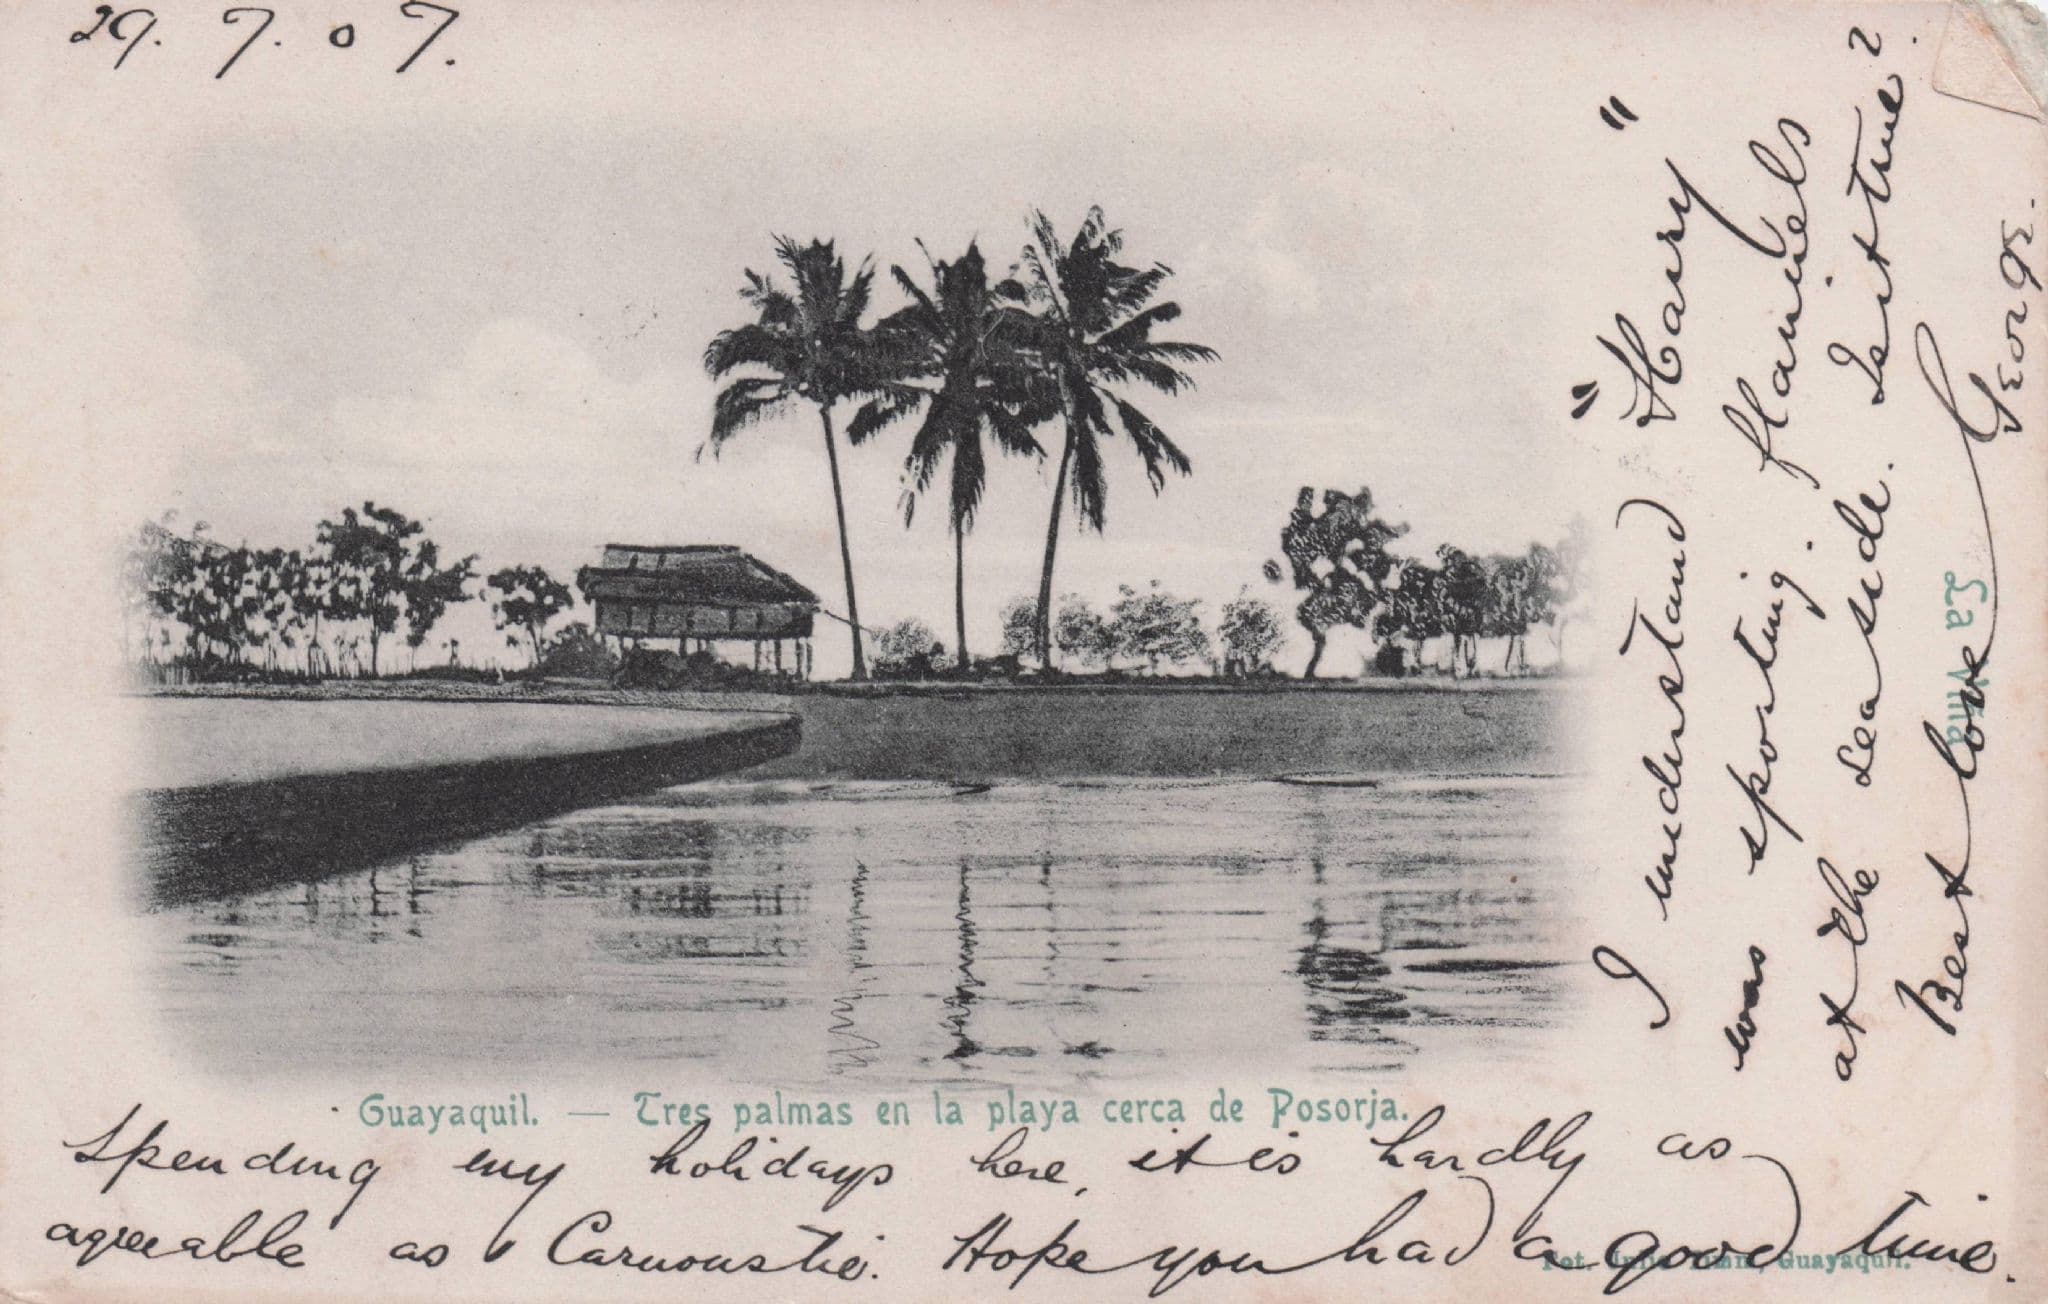 29. 7. 07.
Guayaquil. — Tres palmas en la playa cerca de Posorja.
Spending my holidays here, it is hardly as
agreeable as Carnoustie. Hope you had a good time.
Fot. Julio Timm, Guayaquil.
I understand "Harry"
was sporting flannels
at the seaside. Is it true?
Best love
George.
La Villa